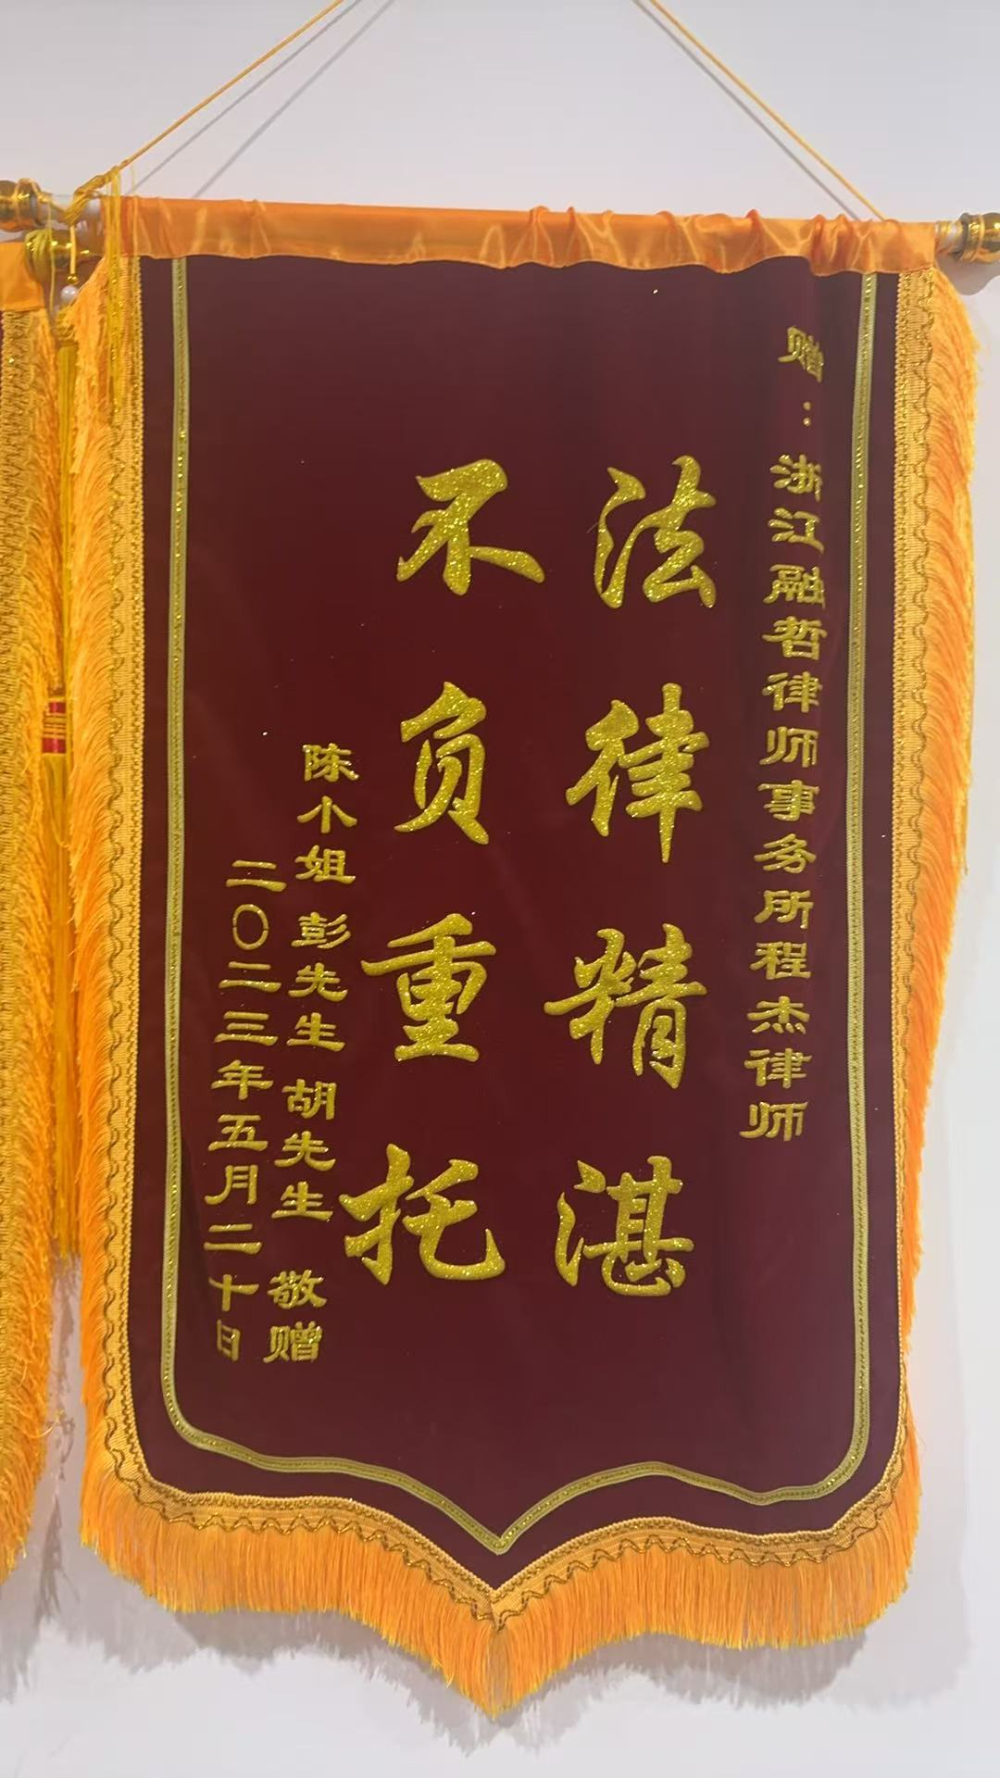 赠：浙江融哲律师事务所程杰律师
法律精湛
不负重托
陈小姐 彭先生 胡先生 敬赠
二〇二三年五月二十日